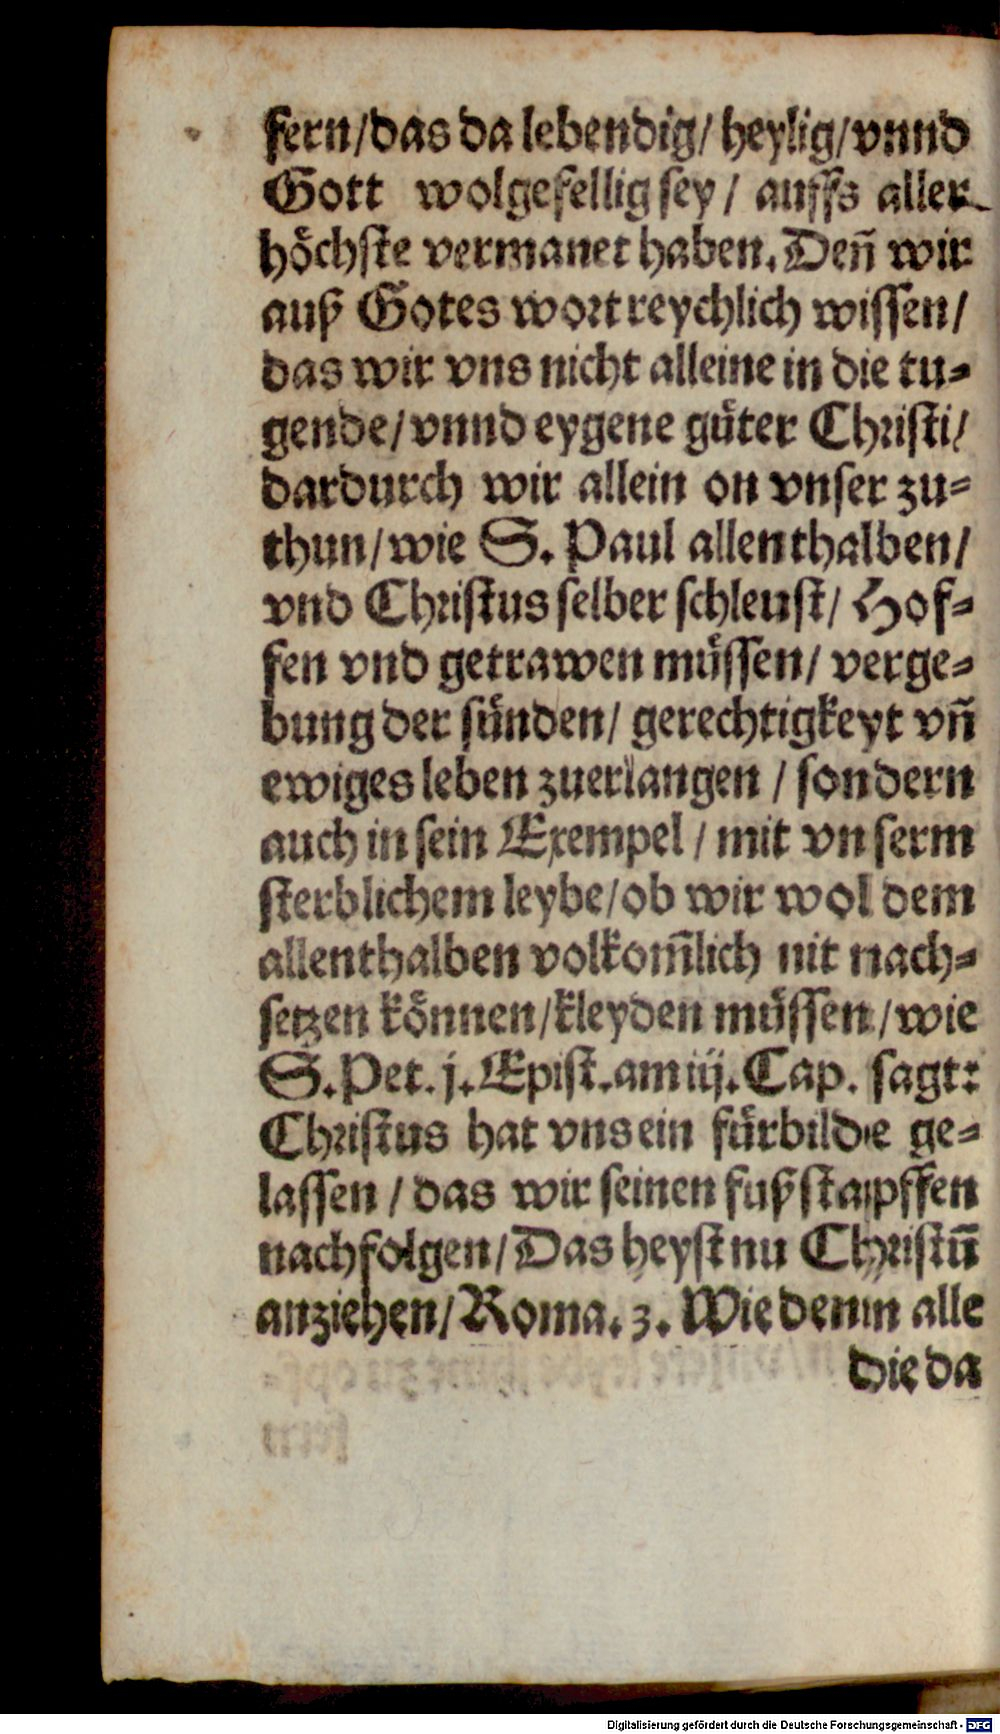 fern/das da lebendig/ heylig/vnnd
Gott wolgefellig sey/ auffs aller
höchste vermanet haben. Deñ wir
auß Gotes wort reychlich wissen/
das wir vns nicht alleine in die tu⸗
gende/vnnd eygene güter Christi/
dardurch wir allein on vnser zu⸗
thun/wie S. Paul allenthalben/
vnd Christus selber schleust/ Hof⸗
fen vnd getrawen müssen/ verge⸗
bung der sünden/ gerechtigkeyt vñ
ewiges leben zuerlangen / sondern
auch in sein Exempel / mit vnserm
sterblichem leybe/ob wir wol dem
allenthalben volkom̃lich nit nach⸗
setzen können/kleyden müssen/wie
S. Pet. j. Epist. am iij. Cap. sagt:
Christus hat vns ein fürbilde ge⸗
lassen / das wir seinen fußstapffen
nachfolgen/Das heyst nu Christū
anziehen/Roma. 3. Wie denn alle
die da
Digitalisierung gefördert durch die Deutsche Forschungsgemeinschaft - DFG